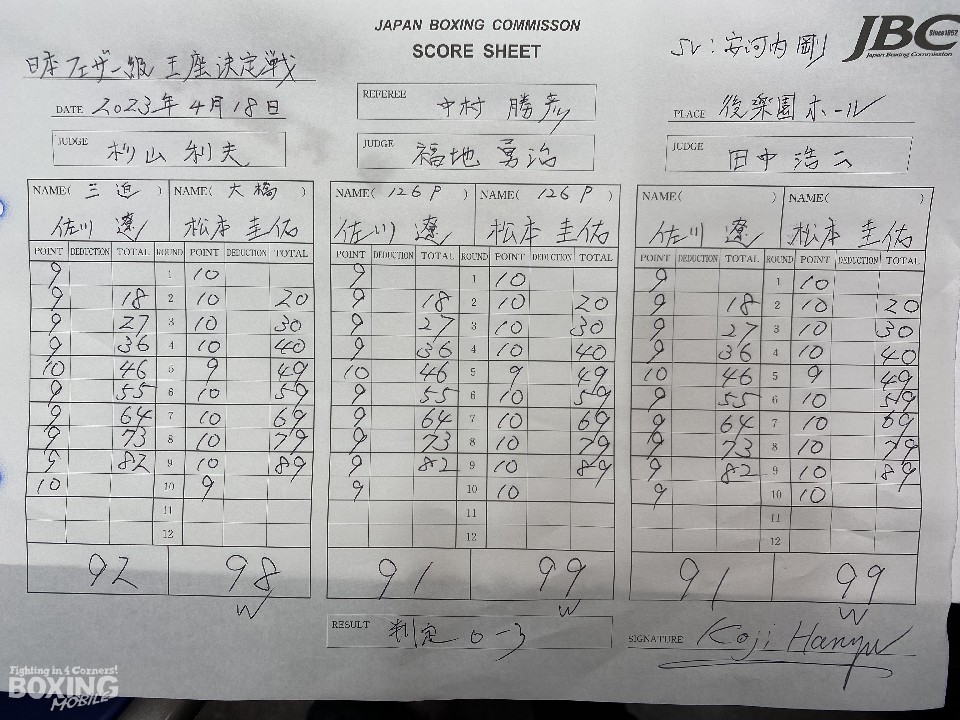 JAPAN BOXING COMMISSON
SCORE SHEET
SV:安河内 剛
JBC
Since1952
Japan Boxing Commission
日本フェザー級 王座決定戦
DATE 2023年4月18日
REFEREE 中村 勝彦
PLACE 後楽園ホール
JUDGE 杉山 利夫
JUDGE 福地 勇治
JUDGE 田中 浩二
NAME( 三迫 ) NAME( 大橋 ) NAME( 126P ) NAME( 126P ) NAME( ) NAME( )
佐川 遼 松本 圭佑 佐川 遼 松本 圭佑 佐川 遼 松本 圭佑
POINT DEDUCTION TOTAL ROUND POINT DEDUCTION TOTAL POINT DEDUCTION TOTAL ROUND POINT DEDUCTION TOTAL POINT DEDUCTION TOTAL ROUND POINT DEDUCTION TOTAL
9 1 10 9 1 10 9 1 10
9 18 2 10 20 9 18 2 10 20 9 18 2 10 20
9 27 3 10 30 9 27 3 10 30 9 27 3 10 30
9 36 4 10 40 9 36 4 10 40 9 36 4 10 40
10 46 5 9 49 10 46 5 9 49 10 46 5 9 49
9 55 6 10 59 9 55 6 10 59 9 55 6 10 59
9 64 7 10 69 9 64 7 10 69 9 64 7 10 69
9 73 8 10 79 9 73 8 10 79 9 73 8 10 79
9 82 9 10 89 9 82 9 10 89 9 82 9 10 89
10 10 9 9 10 10 9 10 10
11 11 11
12 12 12
92 98 91 99 91 99
W W W
RESULT 判定 0-3
SIGNATURE Koji Hanyu
Fighting in 4 Corners!
BOXING
MOBILE